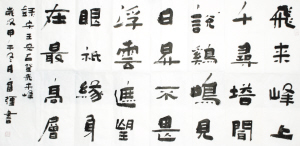 飛來峰上
千尋塔聞
說鷄鳴見
日昇不畏
浮雲遮望
眼祇緣身
在最高層
王安石登飛來峰
甲午冬月書